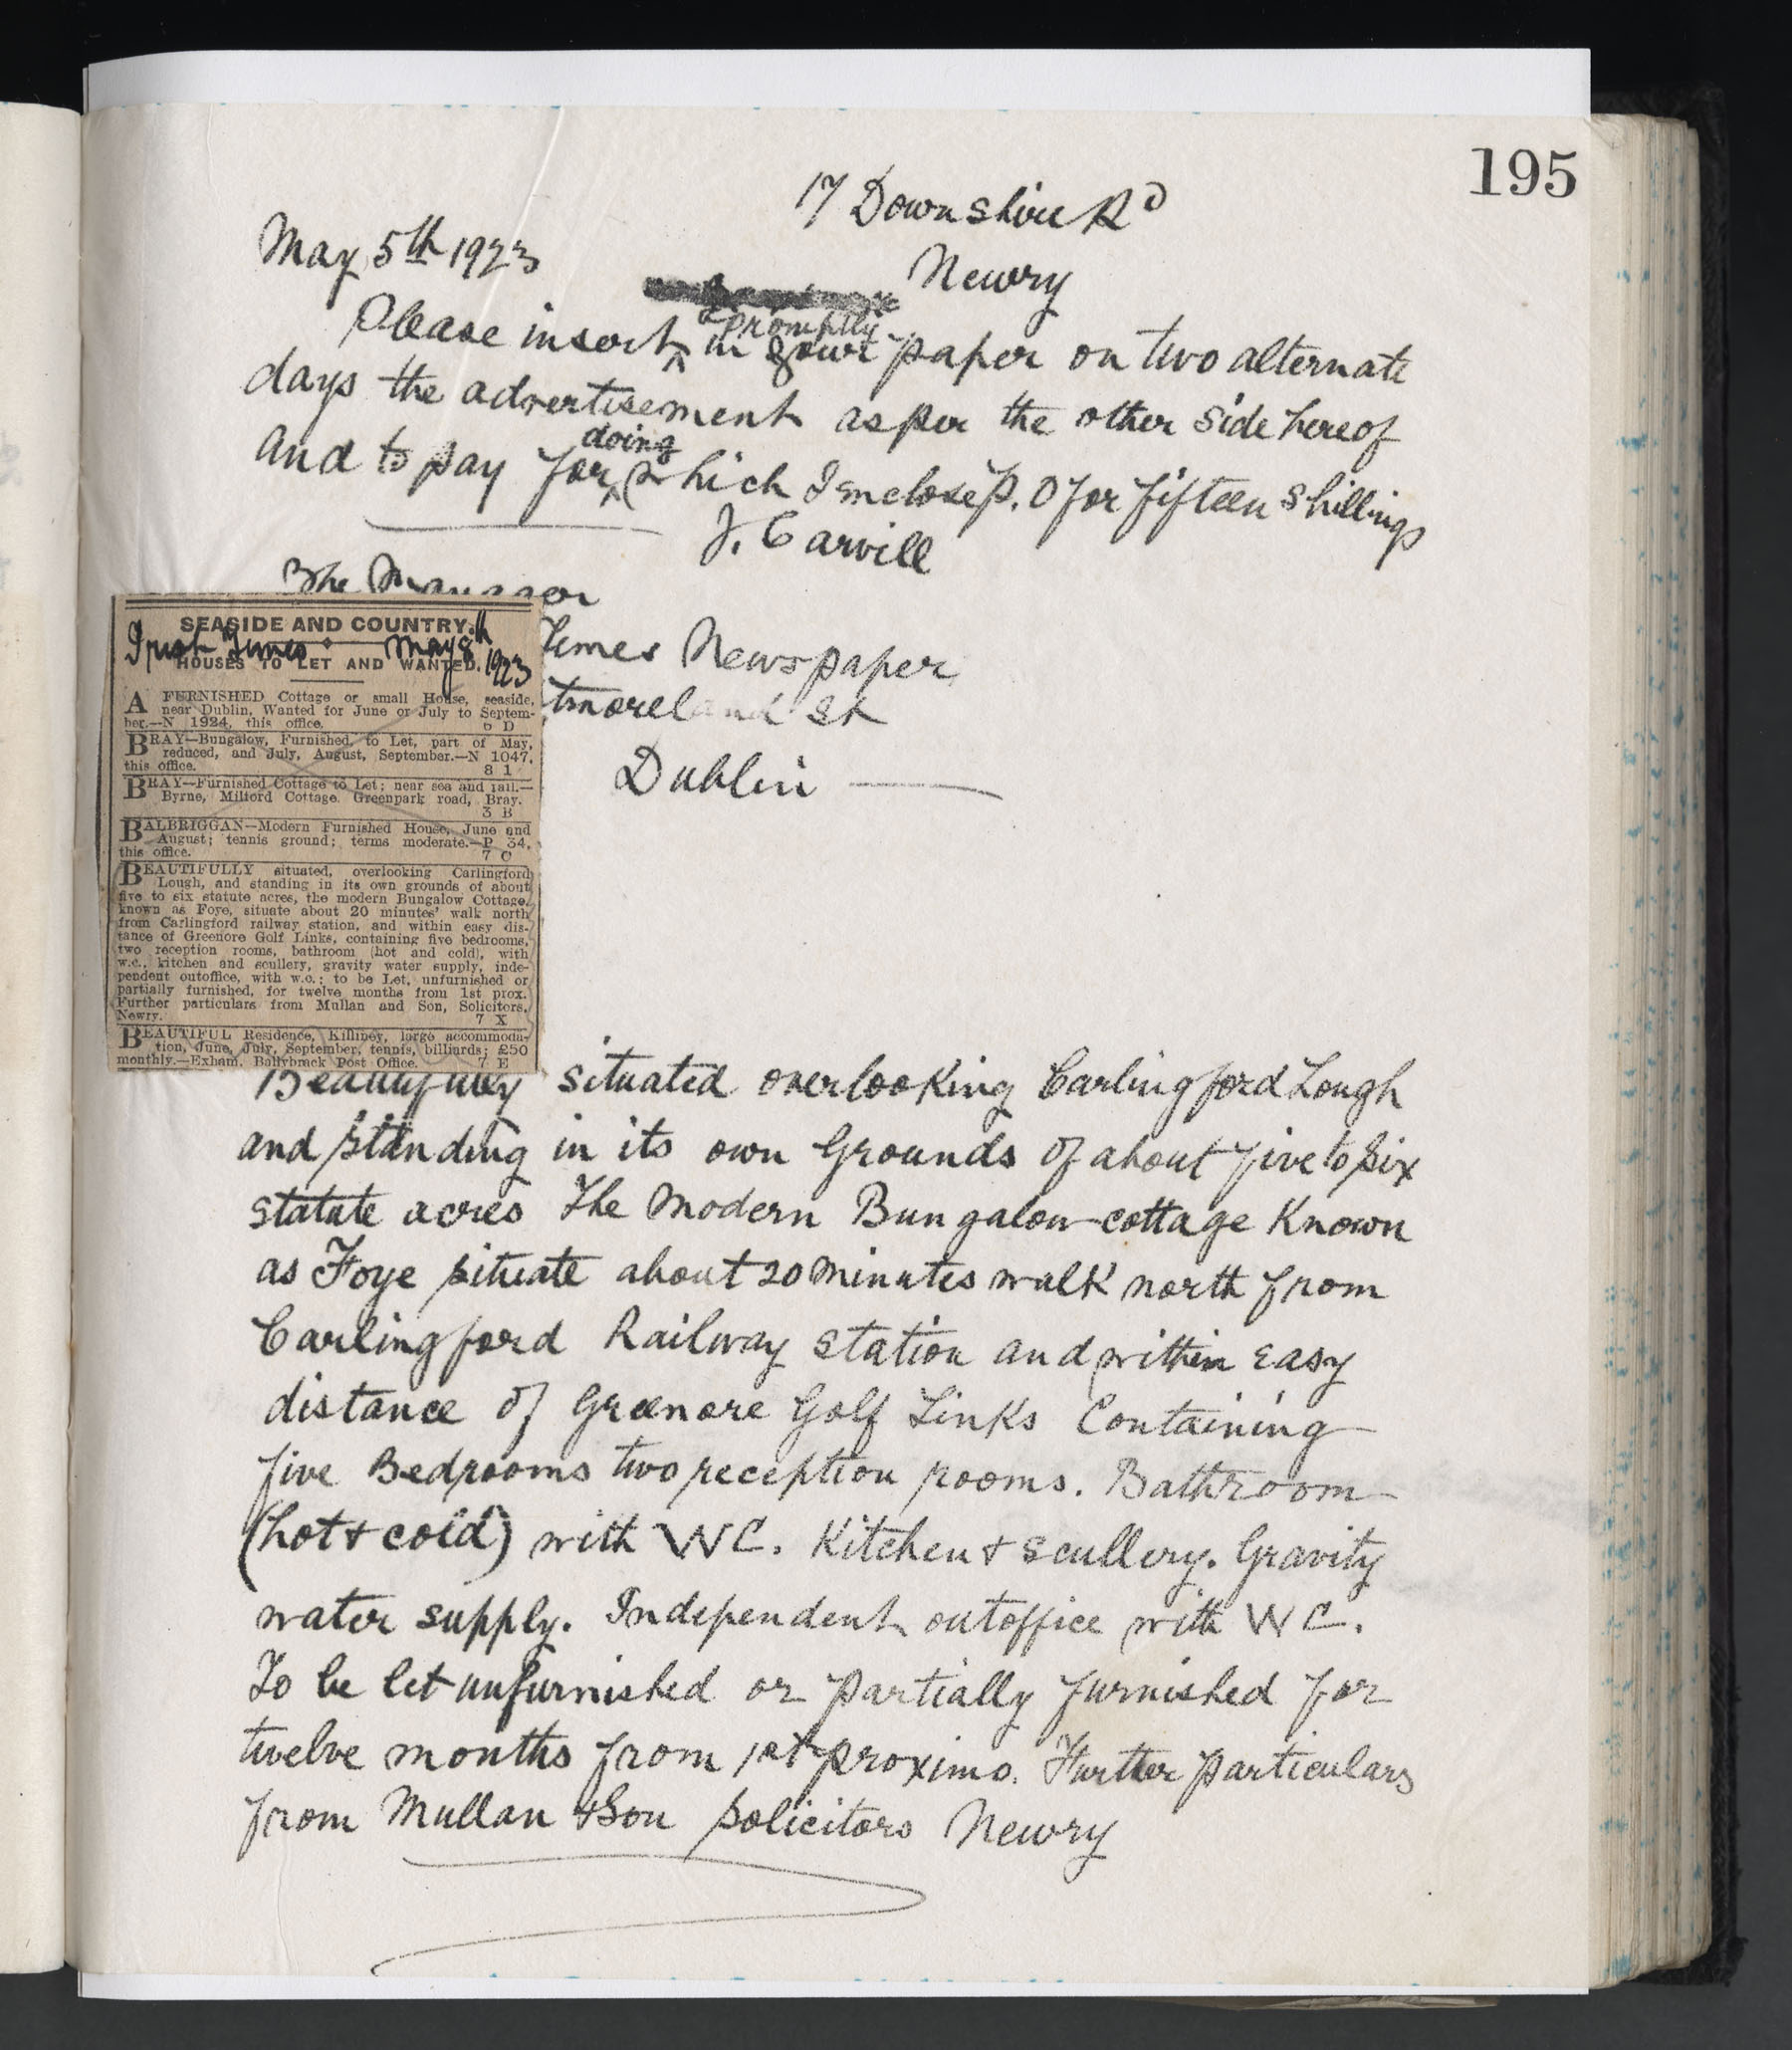 195
17 Downshire Rd
May 5th 1923
Newry
promptly
Please insert ^ in your paper on two alternate
days the advertisement as per the other side hereof
doing
and to pay for ^ which I enclose P.O for fifteen shillings
J. Carvill
The Manager
Times Newspaper
tmoreland St
Dublin
SEASIDE AND COUNTRY.
Irish Times May 8th 1923
HOUSES TO LET AND WANTED.
A FURNISHED Cottage or small House, seaside,
near Dublin, Wanted for June or July to Septem-
ber.—N 1924, this office. 6 D
BRAY—Bungalow, Furnished, to Let, part of May,
reduced, and July, August, September.—N 1047,
this office. 8 1
BRAY—Furnished Cottage to Let; near sea and rail.—
Byrne, Milford Cottage, Greenpark road, Bray.
3 B
BALBRIGGAN—Modern Furnished House, June and
August; tennis ground; terms moderate.—P 34,
this office. 7 C
BEAUTIFULLY situated, overlooking Carlingford
Lough, and standing in its own grounds of about
five to six statute acres, the modern Bungalow Cottage,
known as Foye, situate about 20 minutes' walk north
from Carlingford railway station, and within easy dis-
tance of Greenore Golf Links, containing five bedrooms,
two reception rooms, bathroom (hot and cold), with
w.c., kitchen and scullery, gravity water supply, inde-
pendent outoffice, with w.c.; to be Let, unfurnished or
partially furnished, for twelve months from 1st prox.
Further particulars from Mullan and Son, Solicitors,
Newry. 7 X
BEAUTIFUL Residence, Killiney, large accommoda-
tion, June, July, September, tennis, billiards; £50
monthly.—Exham, Ballybrack Post Office. 7 E
Beautifully situated overlooking Carlingford Lough
and standing in its own Grounds of about five to six
statute acres The Modern Bungalow cottage Known
as Foye situate about 20 minutes walk north from
Carlingford Railway Station and within easy
distance of Greenore Golf Links Containing
five Bedrooms two reception rooms. Bathroom
(hot & cold) with WC. Kitchen & scullery. Gravity
water supply. Independent outoffice with WC.
To be let unfurnished or partially furnished for
twelve months from 1st proximo. Further particulars
from Mullan & Son Solicitors Newry